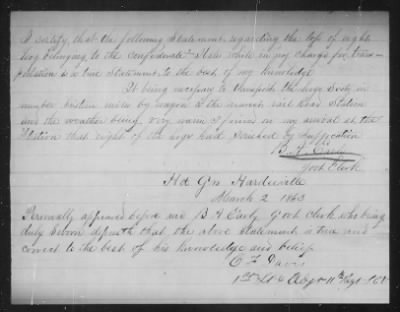 I certify, that the following statement, regarding the loss of eight
hogs belonging to the Confederate States while in my charge for trans-
portation is a true statement to the best of my knowledge
It being necessary to transport the hogs Sixty in
number sixteen miles by wagon to the nearest rail Road Station
and the weather being very warm I found on my arrival at the
Station that eight of the hogs had perished by suffocation
B. A. Early
Govt Clerk
Hd Qrs Hardeeville
March 2 1863
Personally appeared before me B A Early Govt Clerk who being
duly sworn deposeth that the above statement is true and
correct to the best of his knowledge and belief
C F Davis
1st Lt & Adjt 11th Regt S C V